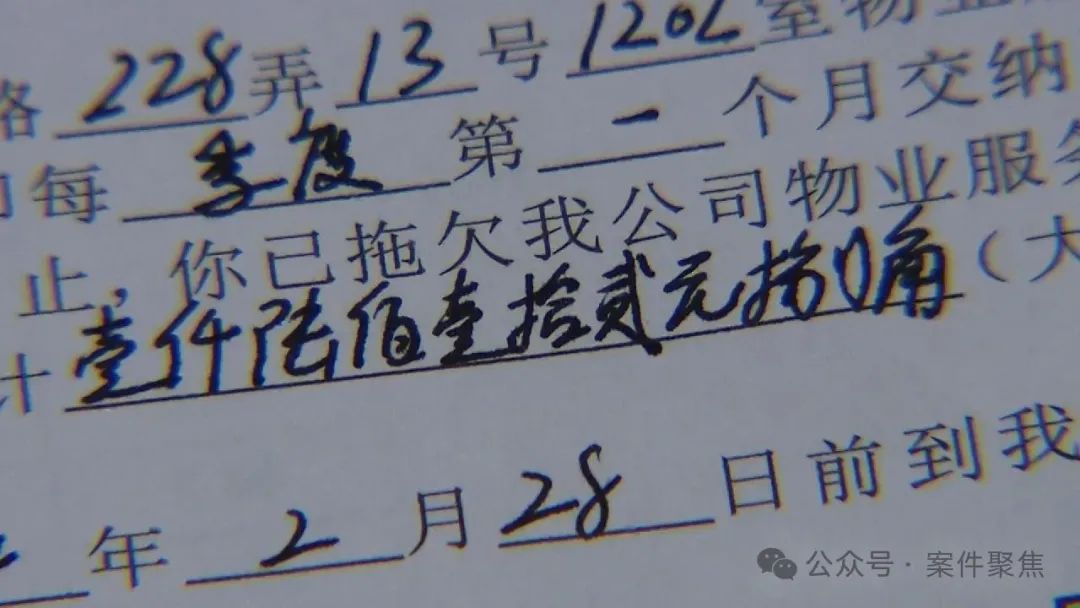 路 228 弄 13 号 1202 室物业
每 季度 第 一 个月交纳
止，你已拖欠我公司物业服务
计 壹仟陆佰壹拾贰元捌角（大
年 2 月 28 日前到我
公众号·案件聚焦